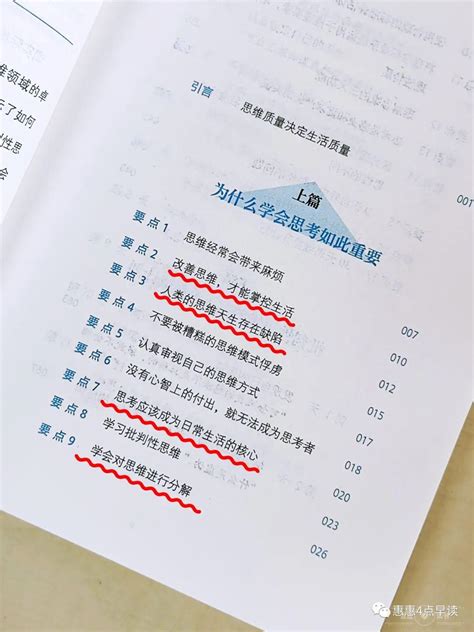 维领域的卓
示了如何
引言
思维质量决定生活质量
001
上篇
为什么学会思考如此重要
要点1
思维经常会带来麻烦
要点2
改善思维，才能掌控生活
要点3
人类的思维天生存在缺陷
要点4
不要被糟糕的思维模式俘虏
要点5
认真审视自己的思维方式
要点6
没有心智上的付出，就无法成为思考者
要点7
思考应该成为日常生活的核心
要点8
学习批判性思维
要点9
学会对思维进行分解
007
010
012
015
018
020
023
026
惠惠4点早读